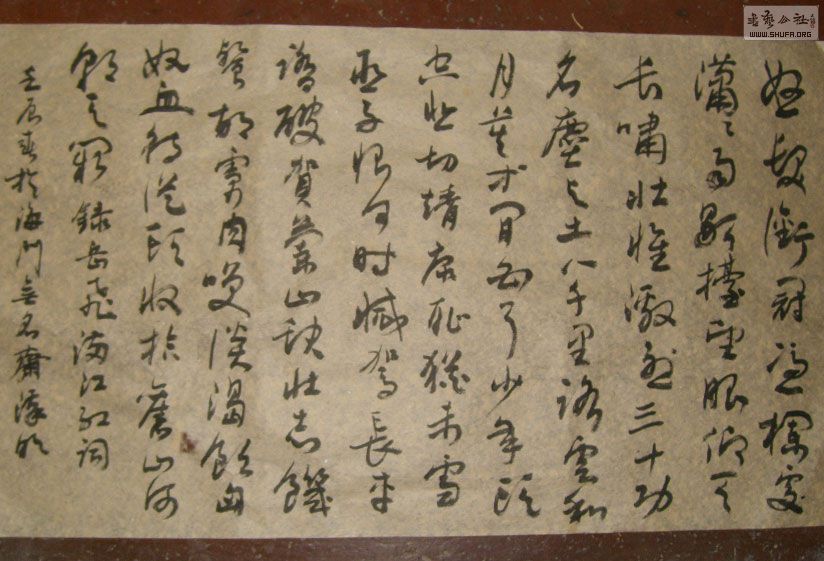 怒髮衝冠憑欄處
瀟瀟雨歇擡望眼仰天
長嘯壯懷激烈三十功
名塵與土八千里路雲和
月莫等閒白了少年頭
空悲切靖康恥猶未雪
臣子恨何時滅駕長車
踏破賀蘭山缺壯志饑
餐胡虜肉笑談渴飲匈
奴血待從頭收拾舊山河
朝天闕 錄岳飛滿江紅詞
壬辰春於海門無名齋
書藝公社
WWW.SHUFA.ORG